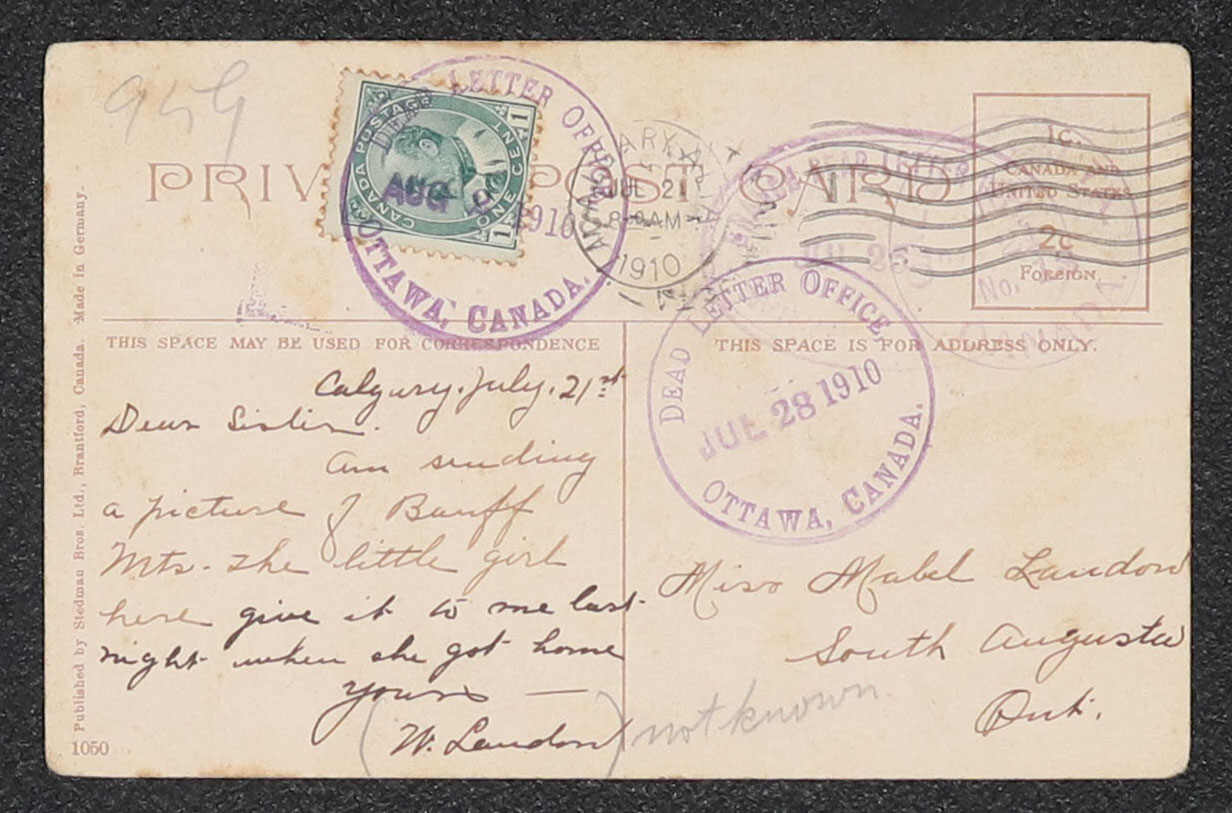 959
PRIVATE POST CARD
CANADA POSTAGE
ONE CENT
1 1
DEAD LETTER OFFICE
AUG 1910
OTTAWA, CANADA.
JUL 21
8-AM
1910
DEAD LETTER
JUL 26
No.
1c.
CANADA AND
UNITED STATES
2c
FOREIGN.
DEAD LETTER OFFICE
JUL 28 1910
OTTAWA, CANADA.
THIS SPACE MAY BE USED FOR CORRESPONDENCE
THIS SPACE IS FOR ADDRESS ONLY.
Calgary. July. 21st
Dear Sister.
am sending
a picture of Banff
Mts. The little girl
here give it to me last
night when she got home
yours —
(W. Landon)
not known.
Miss Mabel Landon
South Augusta
Ont.
Published by Stedman Bros. Ltd., Brantford, Canada. Made in Germany.
1050